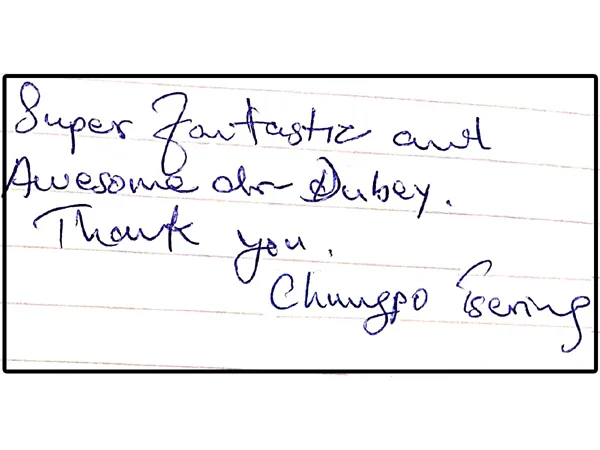 Super Fantastic and
Awesome dr Dubey.
Thank you.
Chungpo Tsering